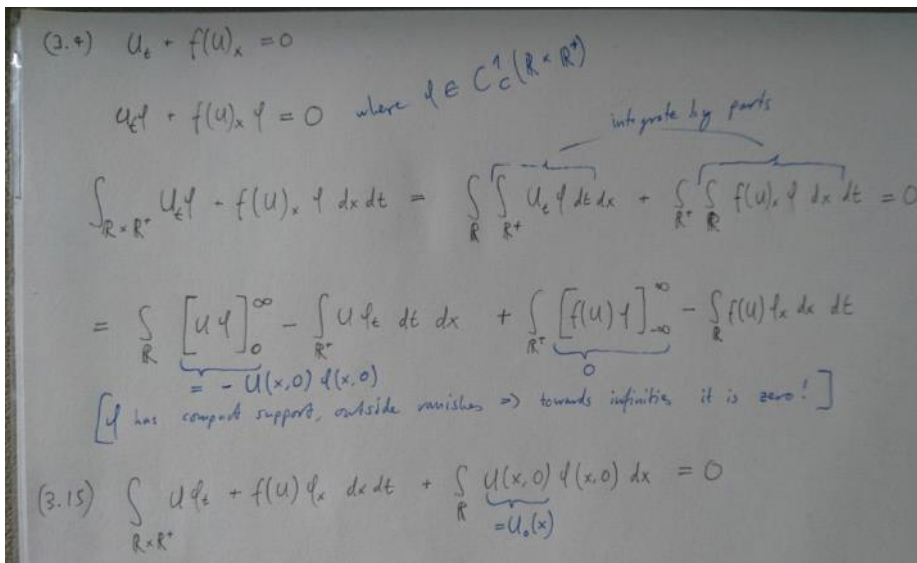 (3.4) U_t + f(U)_x = 0
U_t φ + f(U)_x φ = 0 where φ ∈ C_c^1(ℝ × ℝ^+)
integrate by parts
∫_{ℝ×ℝ^+} U_t φ + f(U)_x φ dx dt = ∫_ℝ ∫_{ℝ^+} U_t φ dt dx + ∫_{ℝ^+} ∫_ℝ f(U)_x φ dx dt = 0
= ∫_ℝ [U φ]_0^∞ - ∫_{ℝ^+} U φ_t dt dx + ∫_{ℝ^+} [f(U) φ]_{-∞}^∞ - ∫_ℝ f(U) φ_x dx dt
= - U(x,0) φ(x,0) 0
[φ has compact support, outside vanishes => towards infinities it is zero!]
(3.15) ∫_{ℝ×ℝ^+} U φ_t + f(U) φ_x dx dt + ∫_ℝ U(x,0) φ(x,0) dx = 0
= U_0(x)